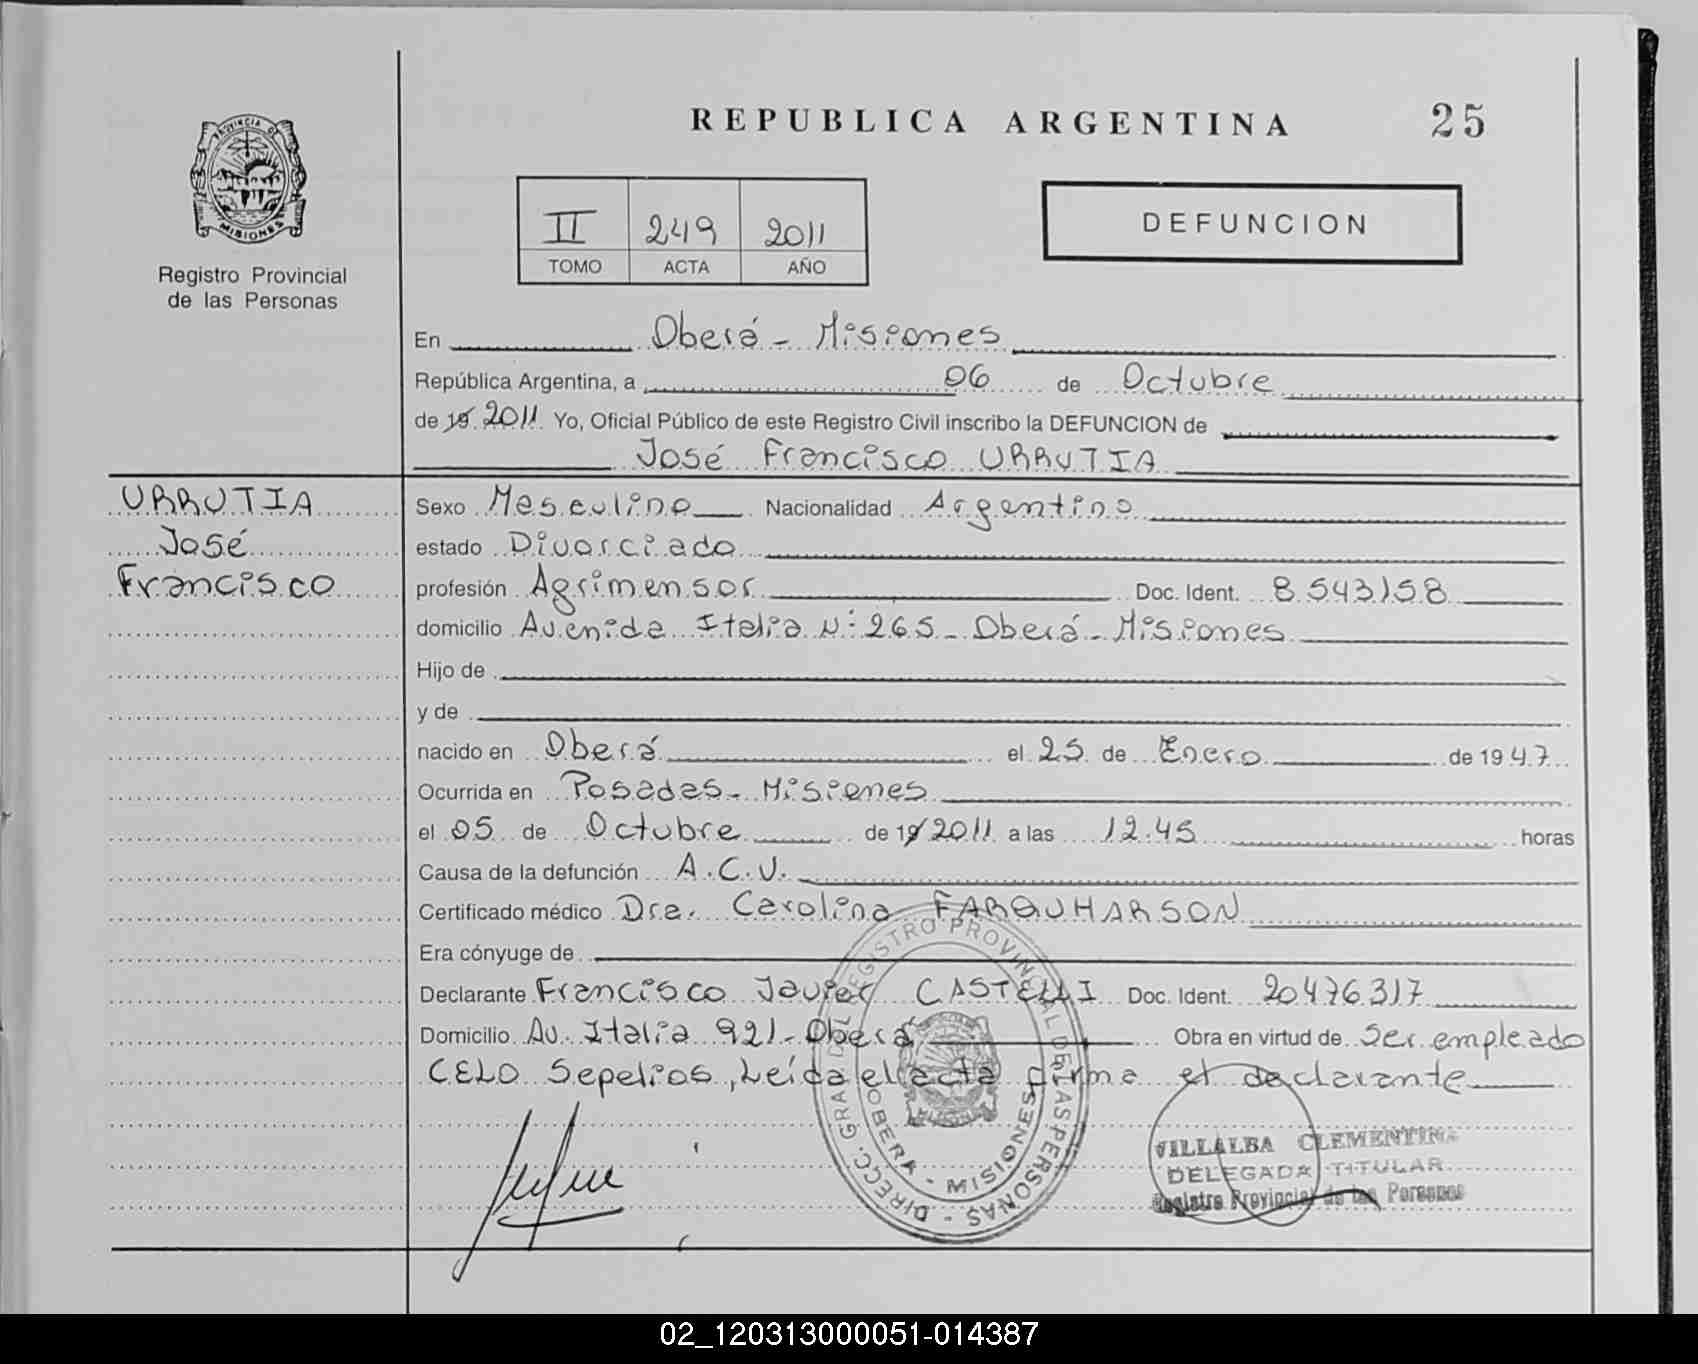 REPUBLICA ARGENTINA
25
PROVINCIA DE
MISIONES
Registro Provincial
de las Personas
II 249 2011
TOMO ACTA AÑO
DEFUNCION
En Oberá - Misiones
República Argentina, a 06 de Octubre
de 19 2011 Yo, Oficial Público de este Registro Civil inscribo la DEFUNCION de
José Francisco URRUTIA
URRUTIA
José
Francisco
Sexo Masculino Nacionalidad Argentino
estado Divorciado
profesión Agrimensor Doc. Ident. 8.543.158
domicilio Avenida Italia N: 265 - Oberá - Misiones
Hijo de
y de
nacido en Oberá el 25 de Enero de 1947
Ocurrida en Posadas - Misiones
el 05 de Octubre de 19 2011 a las 12.45 horas
Causa de la defunción A.C.V.
Certificado médico Dra. Carolina FARQUHARSON
Era cónyuge de
Declarante Francisco Javier CASTELLI Doc. Ident. 20.476.317
Domicilio Av. Italia 921 - Oberá Obra en virtud de Ser empleado
CELO Sepelios, Leída el acta firma el declarante
DIRECC. GRAL. DEL REGISTRO PROVINCIAL DE LAS PERSONAS
OBERA - MISIONES
VILLALBA CLEMENTINA
DELEGADA TITULAR
Registro Provincial de las Personas
02_120313000051-014387